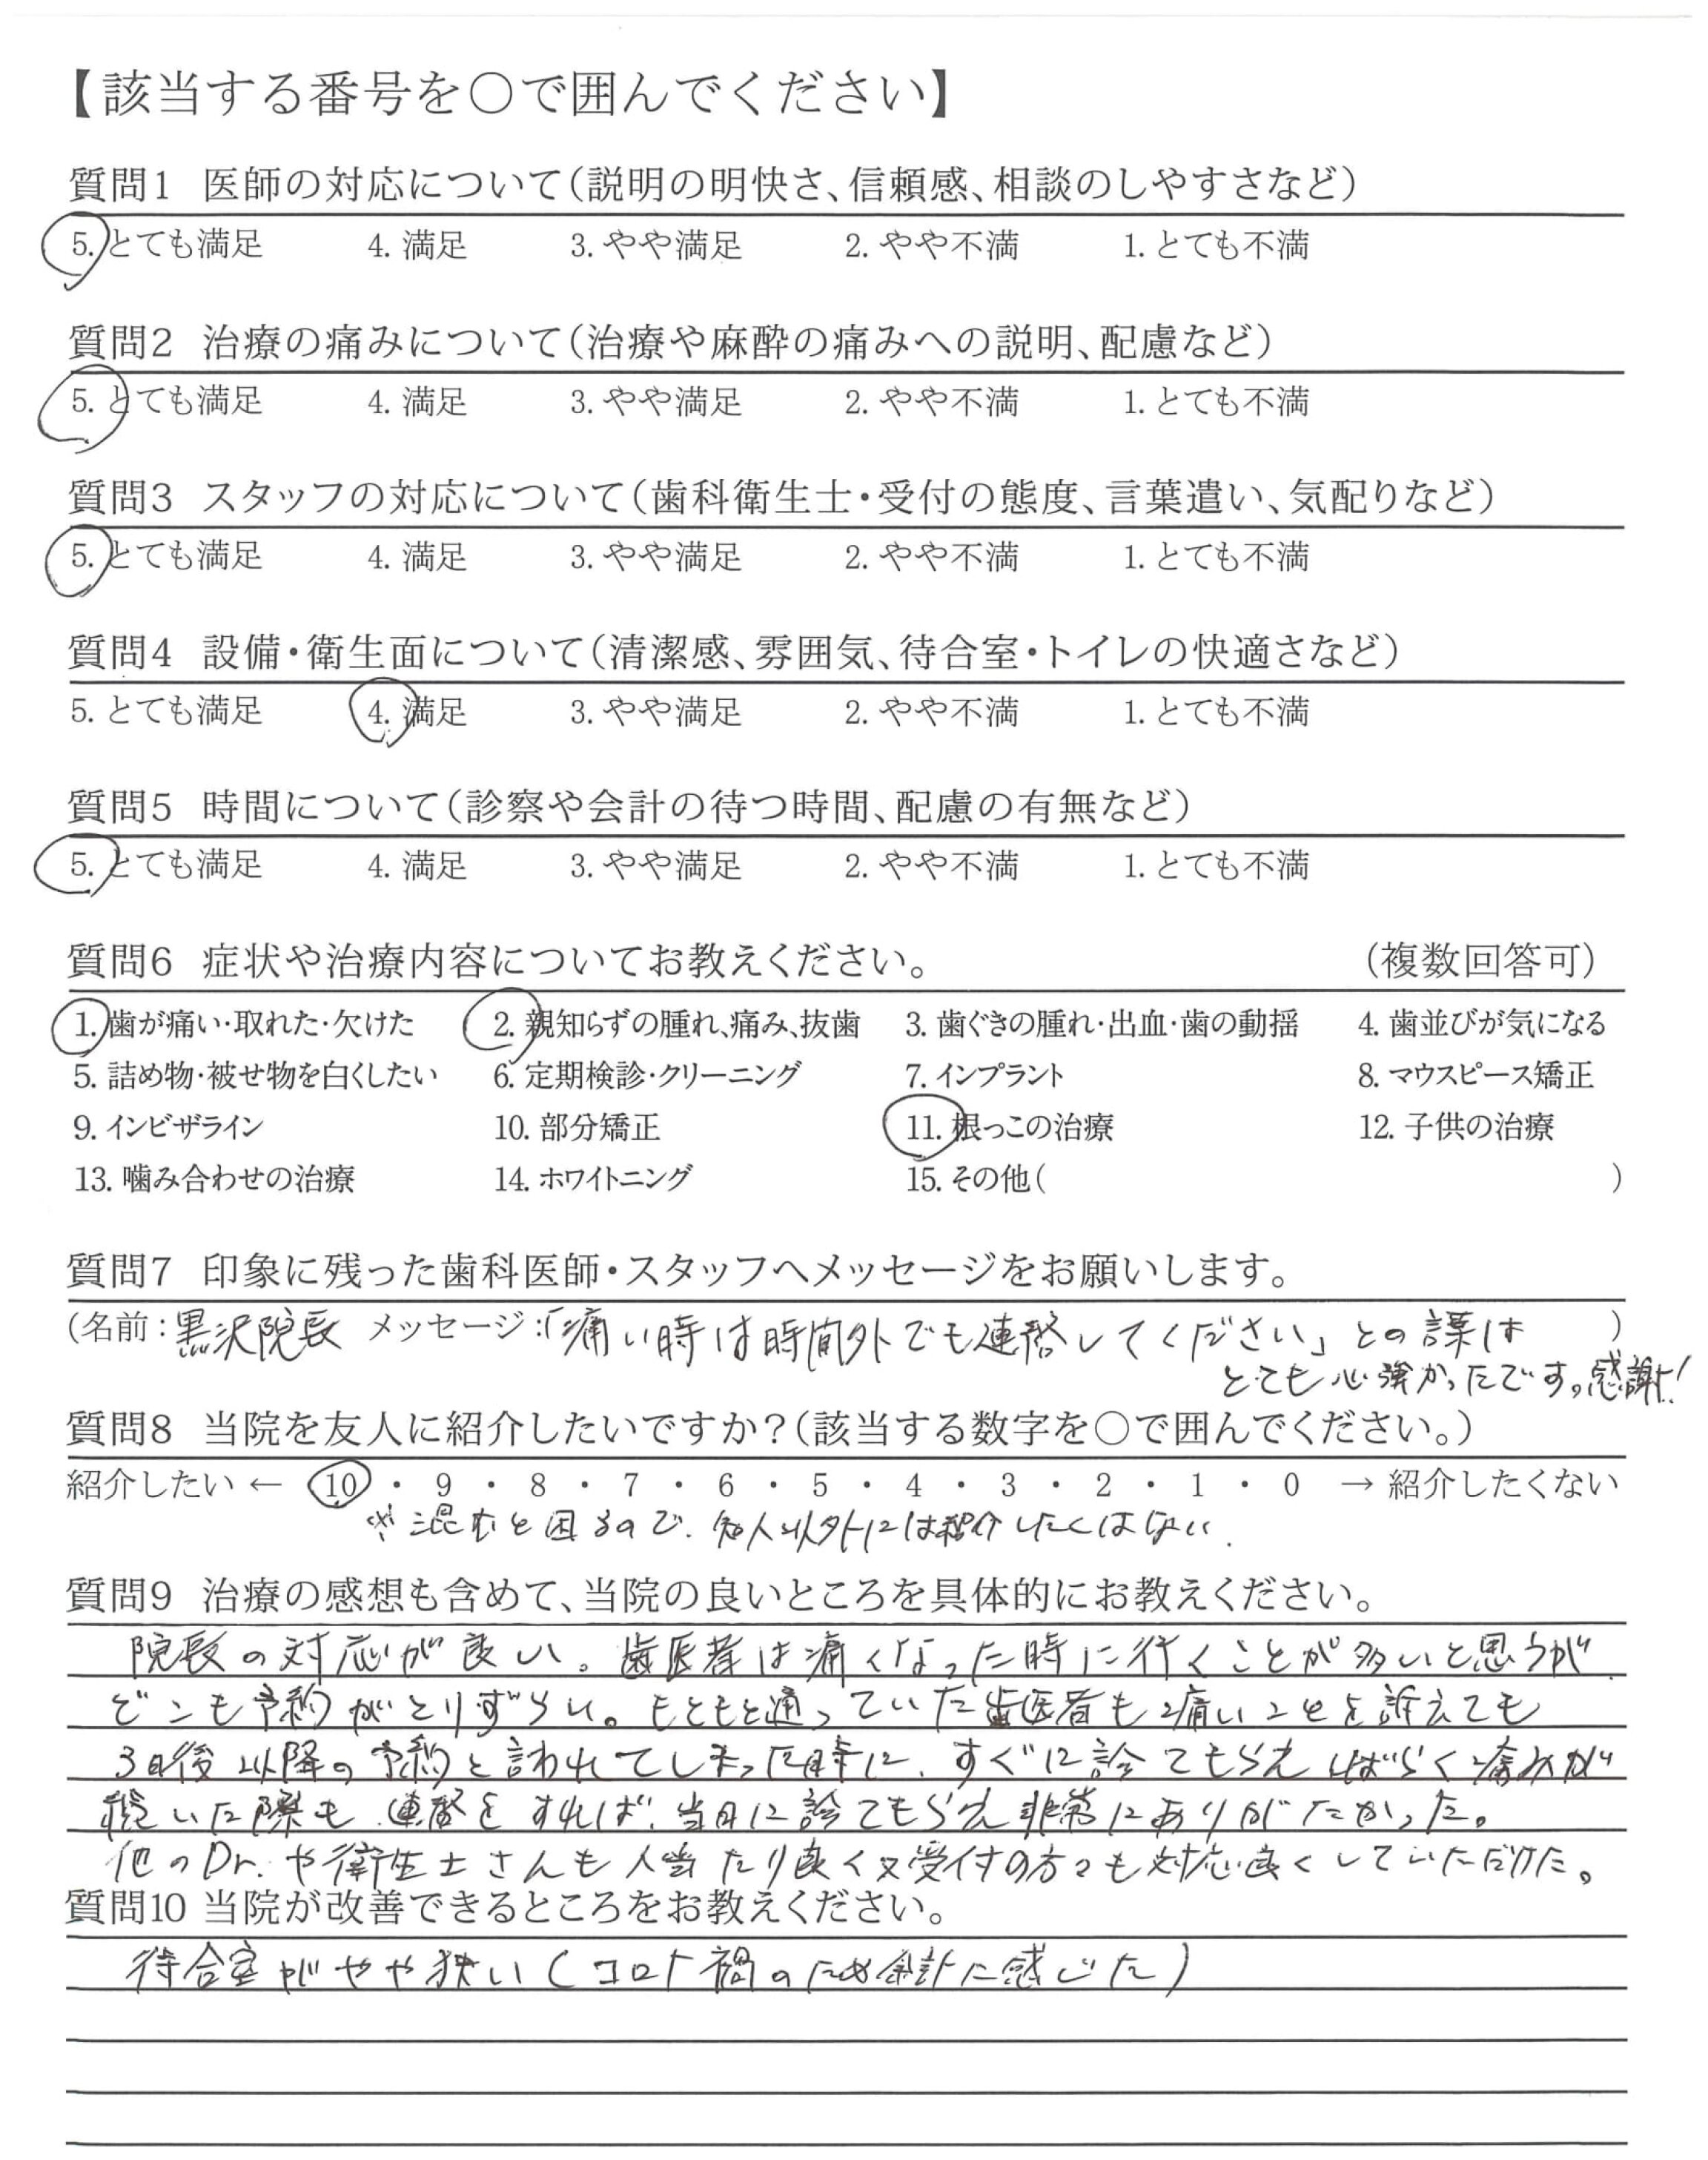 【該当する番号を○で囲んでください】
質問1 医師の対応について(説明の明快さ、信頼感、相談のしやすさなど)
5. とても満足 4. 満足 3. やや満足 2. やや不満 1. とても不満
質問2 治療の痛みについて(治療や麻酔の痛みへの説明、配慮など)
5. とても満足 4. 満足 3. やや満足 2. やや不満 1. とても不満
質問3 スタッフの対応について(歯科衛生士・受付の態度、言葉遣い、気配りなど)
5. とても満足 4. 満足 3. やや満足 2. やや不満 1. とても不満
質問4 設備・衛生面について(清潔感、雰囲気、待合室・トイレの快適さなど)
5. とても満足 4. 満足 3. やや満足 2. やや不満 1. とても不満
質問5 時間について(診察や会計の待つ時間、配慮の有無など)
5. とても満足 4. 満足 3. やや満足 2. やや不満 1. とても不満
質問6 症状や治療内容についてお教えください。 (複数回答可)
1. 歯が痛い・取れた・欠けた 2. 親知らずの腫れ、痛み、抜歯 3. 歯ぐきの腫れ・出血・歯の動揺 4. 歯並びが気になる
5. 詰め物・被せ物を白くしたい 6. 定期検診・クリーニング 7. インプラント 8. マウスピース矯正
9. インビザライン 10. 部分矯正 11. 根っこの治療 12. 子供の治療
13. 噛み合わせの治療 14. ホワイトニング 15. その他( )
質問7 印象に残った歯科医師・スタッフへメッセージをお願いします。
(名前:黒沢院長 メッセージ:「痛い時は時間外でも連絡してください」との言葉は )
とても心強かったです。感謝!
質問8 当院を友人に紹介したいですか?(該当する数字を○で囲んでください。)
紹介したい ← 10 ・ 9 ・ 8 ・ 7 ・ 6 ・ 5 ・ 4 ・ 3 ・ 2 ・ 1 ・ 0 → 紹介したくない
※混むと困るので、知人以外には紹介したくはない.
質問9 治療の感想も含めて、当院の良いところを具体的にお教えください。
院長の対応が良い。歯医者は痛くなった時に行くことが多いと思うが
どこも予約がとりずらい。もともと通っていた歯医者も痛いことを訴えても
3日後以降の予約と言われてしまった時に、すぐに診てもらえ しばらく痛みが
続いた際も 連絡をすれば、当日に診てもらえ 非常にありがたかった。
他のDr.や衛生士さんも人当たり良く又受付の方々も対応良くしていただけた。
質問10 当院が改善できるところをお教えください。
待合室がやや狭い(コロナ禍のため余計に感じた)